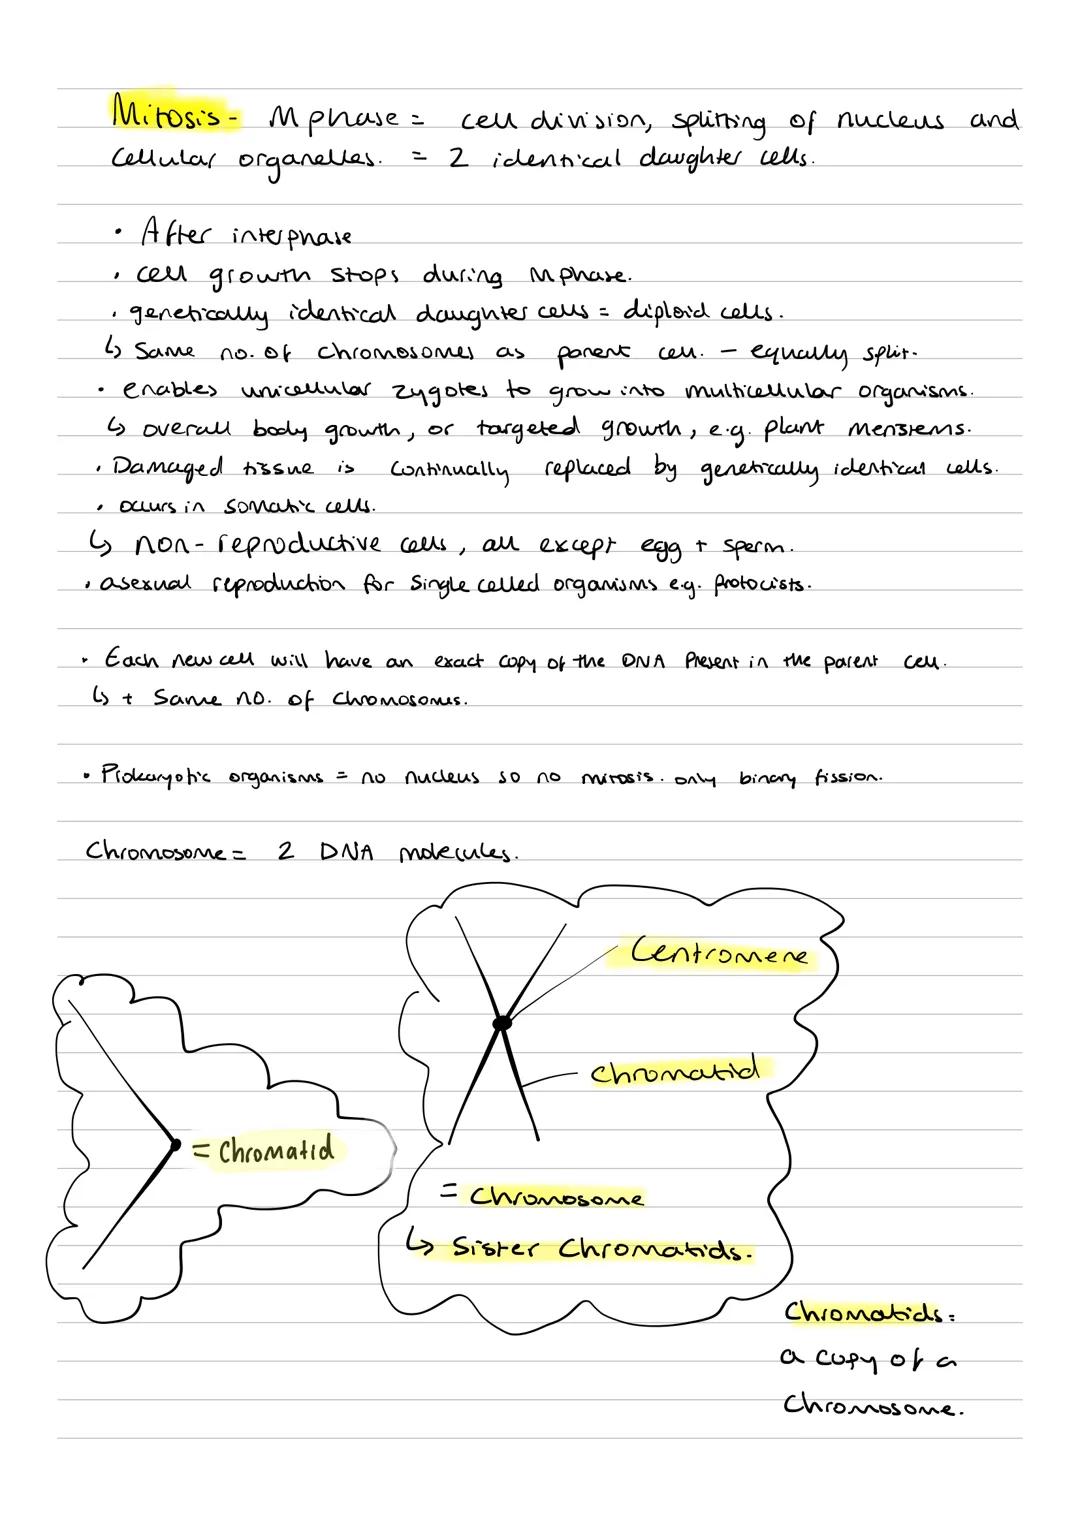 Mitosis - M phase = cell division, splitting of nucleus and
Cellular organelles. = 2 identical daughter cells.
• After interphase
• cell growth stops during M phase.
• genetically identical daughter cells = diploid cells.
↳ Same no. of chromosomes as parent cell. - equally split.
• enables unicellular zygotes to grow into multicellular organisms.
↳ overall body growth, or targeted growth, e.g. plant meristems.
• Damaged tissue is continually replaced by genetically identical cells.
• occurs in somatic cells.
↳ non-reproductive cells, all except egg + sperm.
• asexual reproduction for single celled organisms e.g. protocists.
• Each new cell will have an exact copy of the DNA Present in the parent cell.
↳ + Same no. of chromosomes.
• Prokaryotic organisms = no nucleus so no mitosis. only binary fission.
Chromosome = 2 DNA molecules.
Centromere
Chromatid
= Chromatid
= Chromosome
↳ Sister Chromatids.
Chromatids =
a copy of a
Chromosome.